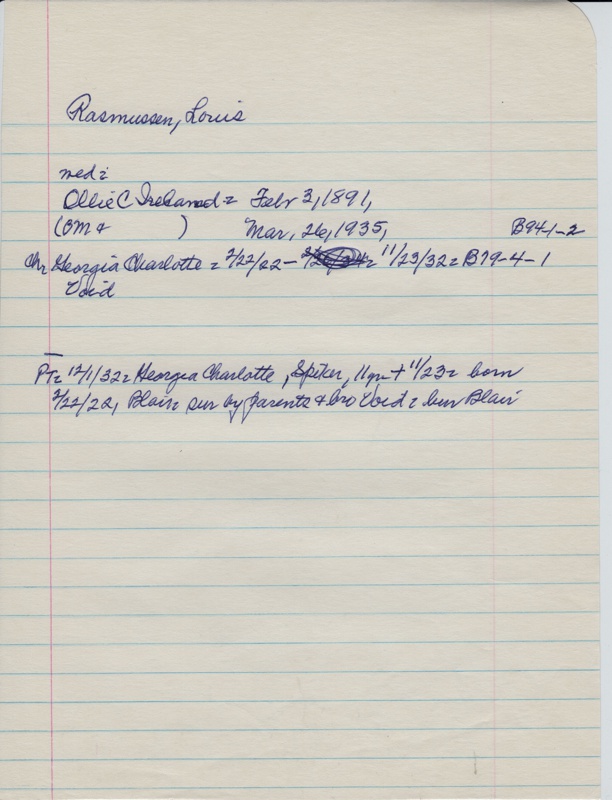 Rasmussen, Louis
med:
Ollie C Ireland = Febr 3, 1891,
(BM & ) Mar, 26, 1935, B94-1-2
Chr Georgia Charlotte = 2/22/22 - 11/23/32 = B79-4-1
Void
PT = 12/1/32 = Georgia Charlotte, Spiker, 11 yr + 11/23 = born
2/22/22, Blair = sur by parents & bro Void = bur Blair